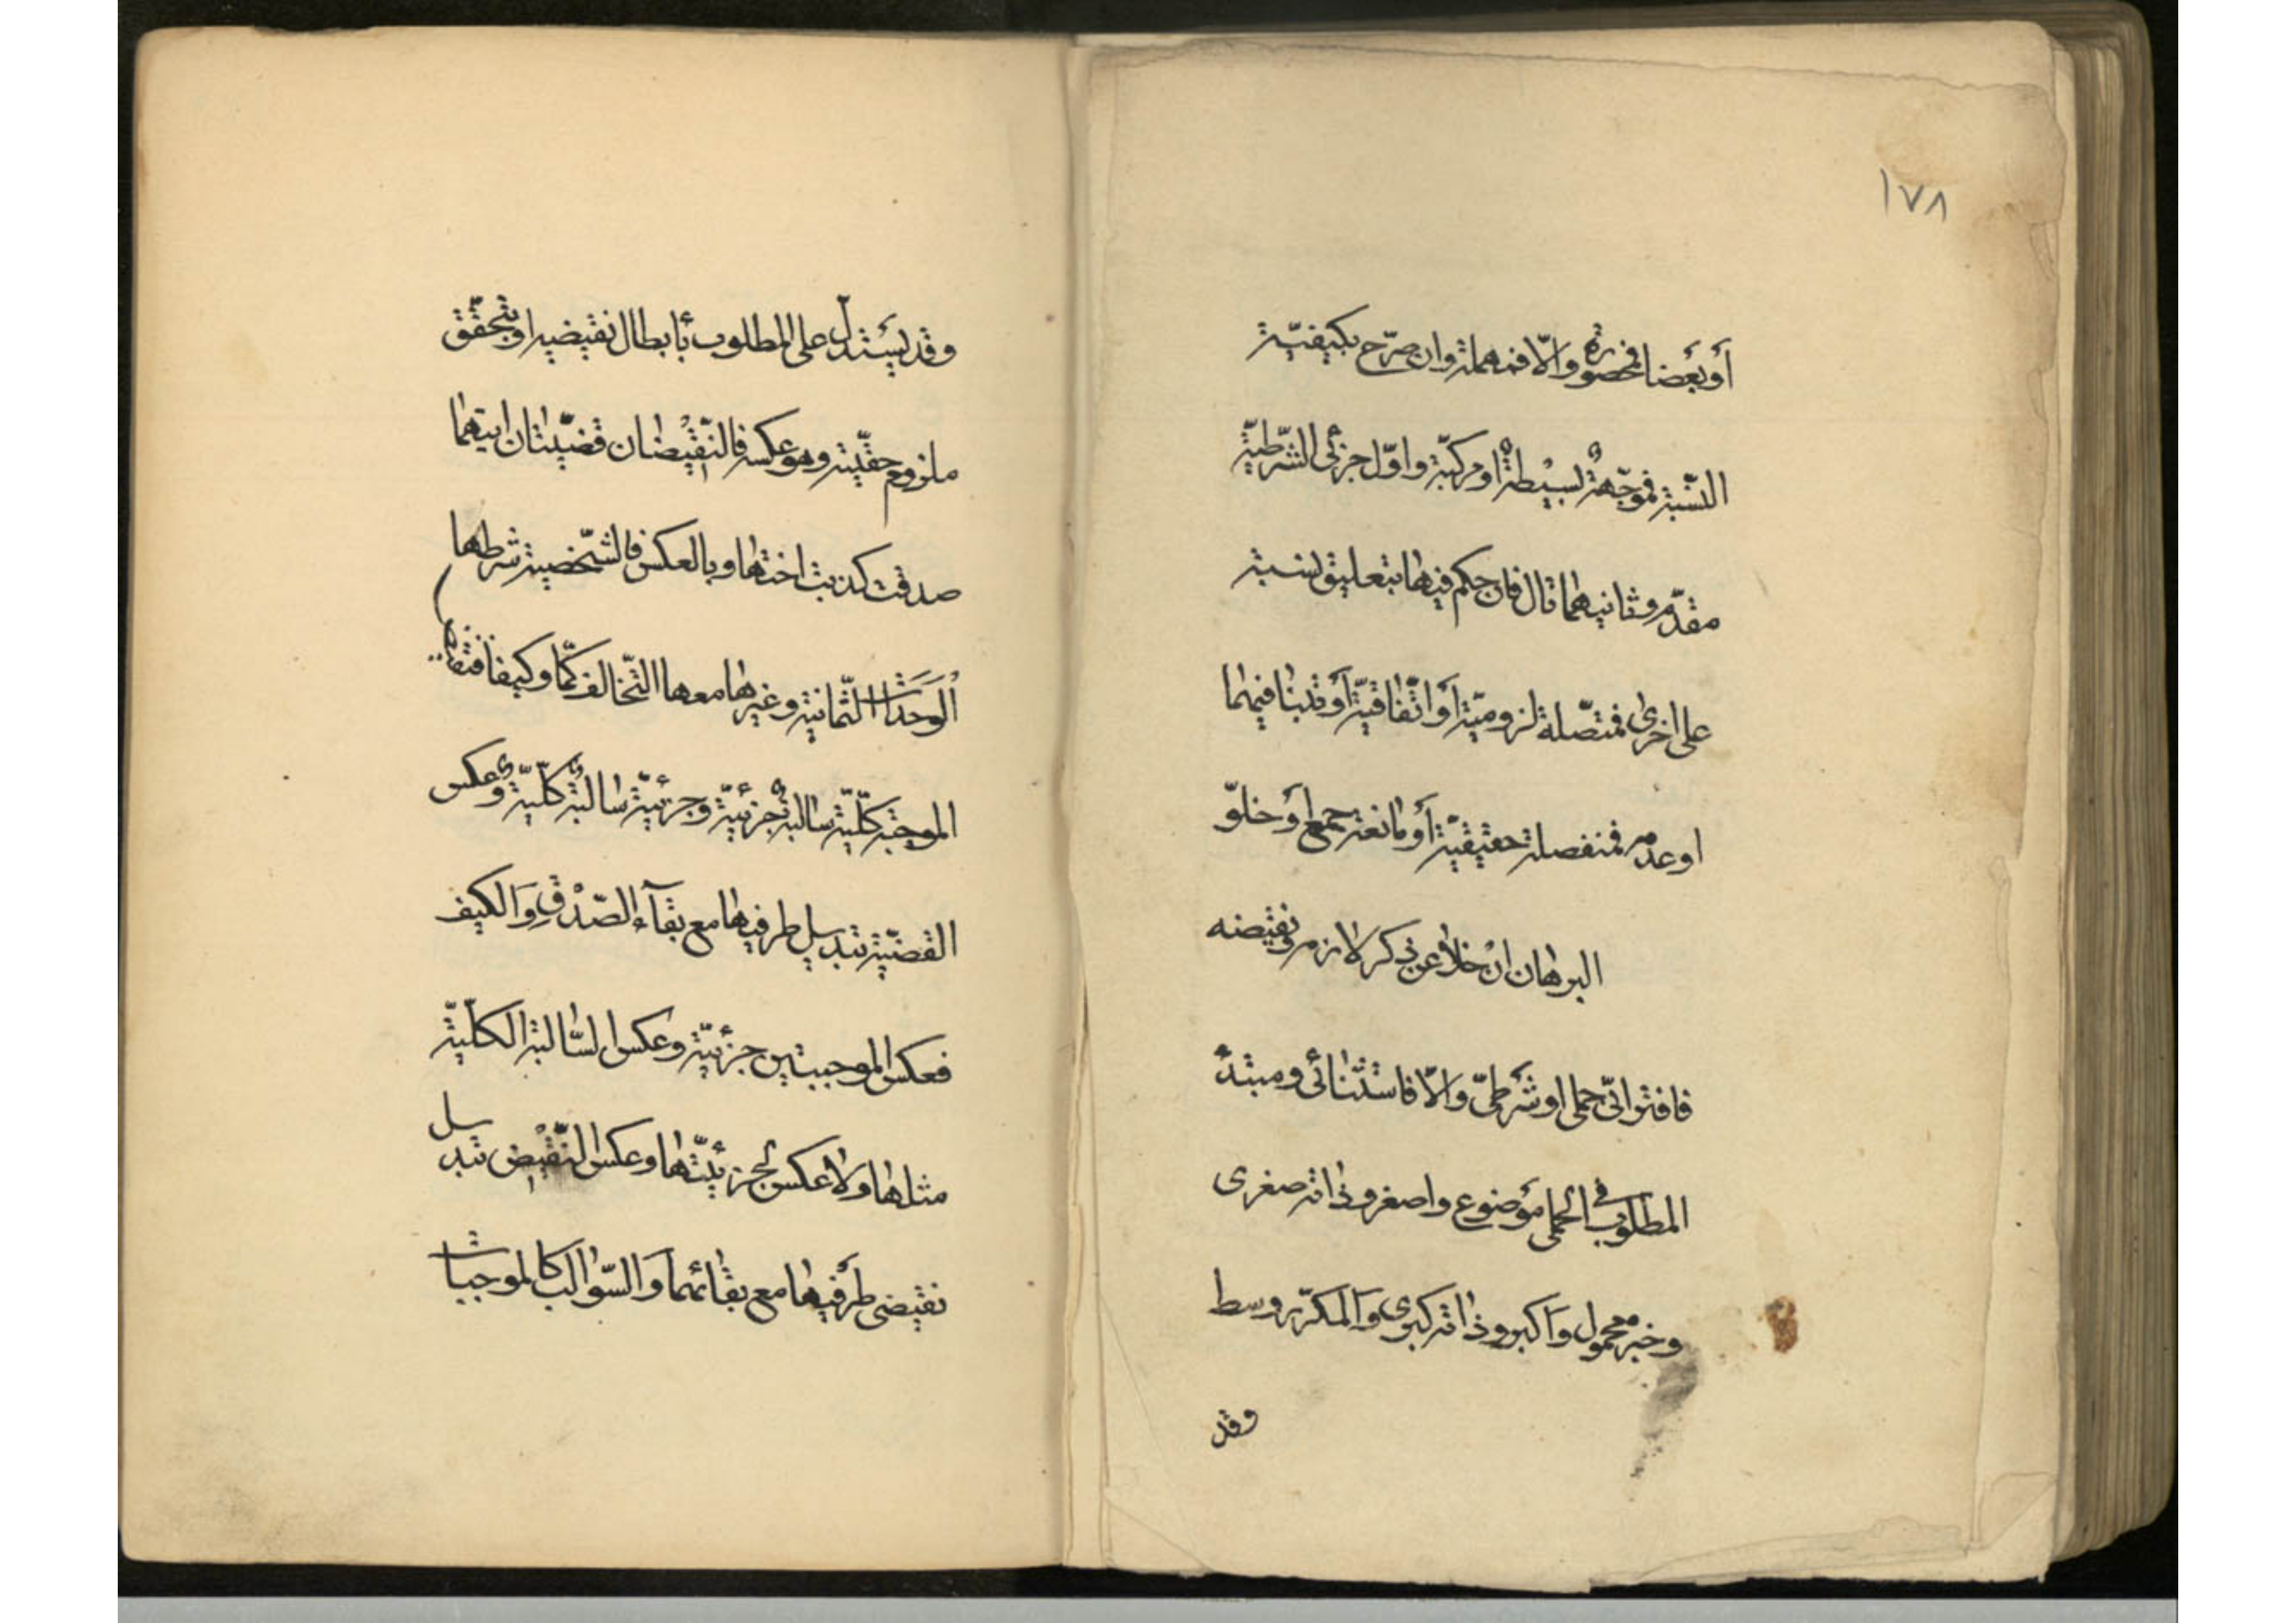 ١٧٨
أو بعضا فمحصورة والّا فمهملة وان صرّح بكيفيّة
النّسبة فموجّهة بسيطة او مركّبة واوّل جزئي الشّرطيّة
مقدّم وثانيهما تال فان حكم فيها بتعليق نسبة
على اخرى فمتصّلة لزوميّة أو اتّفاقيّة أو فيهما
او عدمه فمنفصلة حقيقيّة أو مانعة جمع أو خلوّ
البرهان ان خلا عن ذكر لازم ونقيضه
فاقتراني حملي او شرطيّ والّا فاستثنائي ومبتدأ
المطلوب في الحملي موضوع واصغر وذاته صغرى
وخبره محمول وأكبر وذاته كبرى والمكرّر وسط
وقد
وقد يستدلّ على المطلوب بأبطال نقيضه او بتحقّق
ملزوم حقيّته وهو عكسه فالنّقيضان قضيّتان ايتهما
صدقت كذبت اختها وبالعكس فالشّخصية شرطها
الوحدات الثّمانية وغيرها معها التّخالف كمّا وكيفا
الموجبة كلّيّة سالبة جزئيّة وجزئيّة سالبة كلّيّة وعكس
القضيّة تبديل طرفيها مع بقآء الصّدق والكيف
فعكس الموجبتين جزئيّة وعكس السّالبة الكلّيّة
مثلها ولا عكس لجزئيّتها وعكس النّقيض تبديل
نقيضى طرفيها مع بقائهما والسّوالب كالموجبات